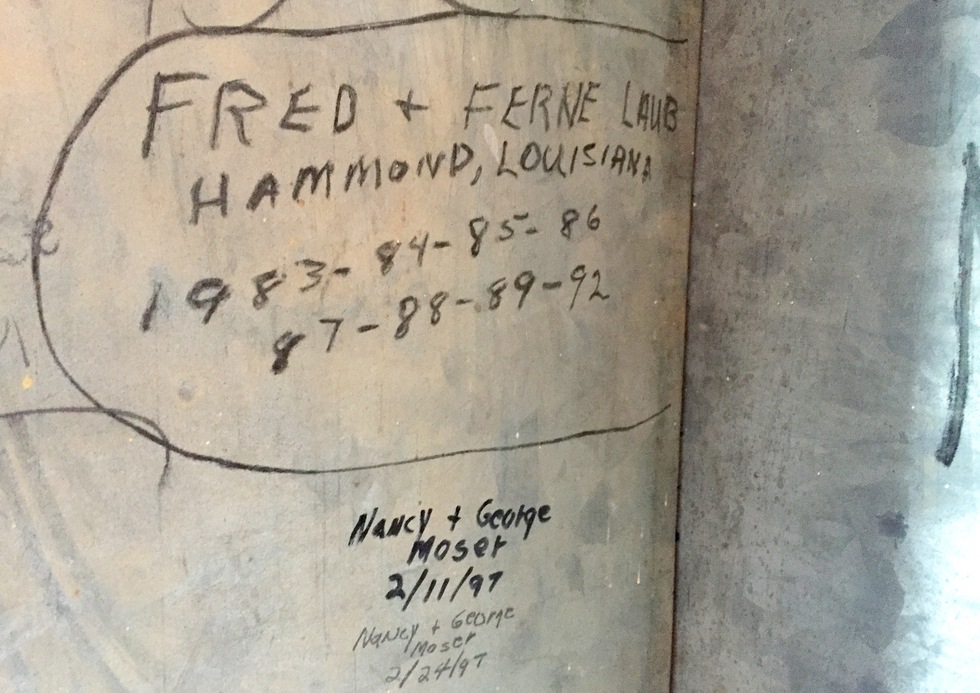 FRED + FERNE LAUB
HAMMOND, LOUISIANA
1983- 84- 85- 86
87-88-89-92
Nancy + George
Moser
2/11/97
Nancy + George
Moser
2/24/97